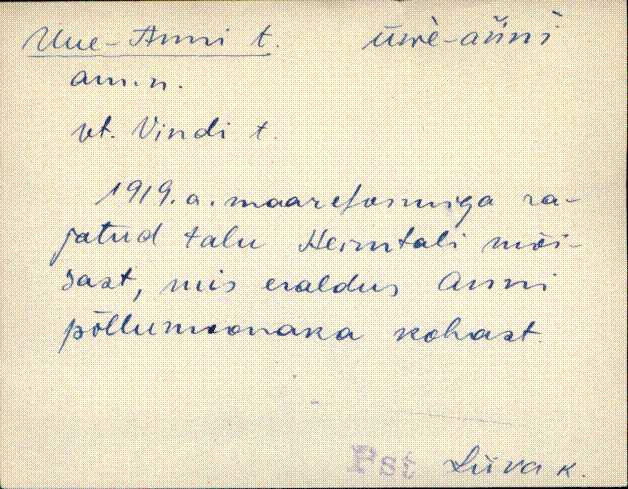 Uue-Anni t. ūwè-ańńì
am.n.
vt. Vindi t.
1919.a. maareformiga ra-
jatud talu Heimtali mõi-
sast, mis eraldus Anni
põllumoonaka kohast.
Pst Liiva k.